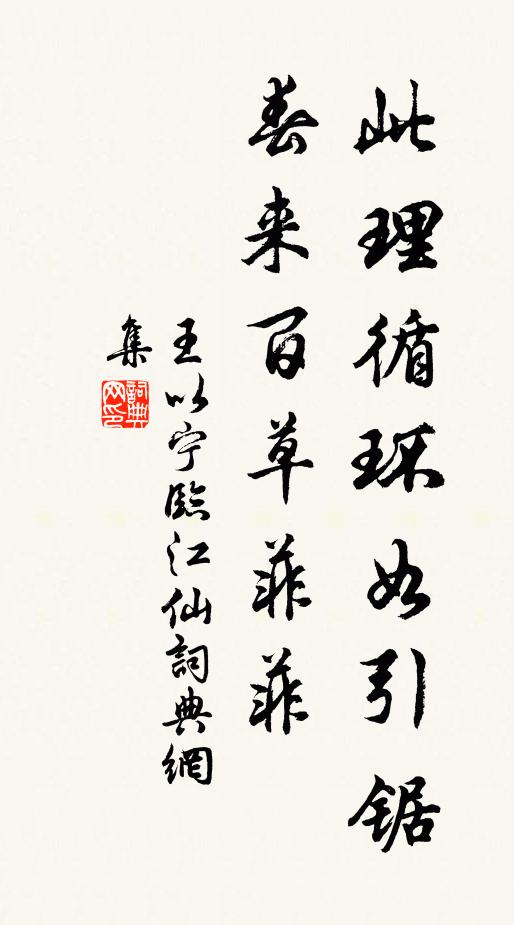 此理循环如引锯
春来百草菲菲
王以宁臨江仙詞典網
集
詞典網印